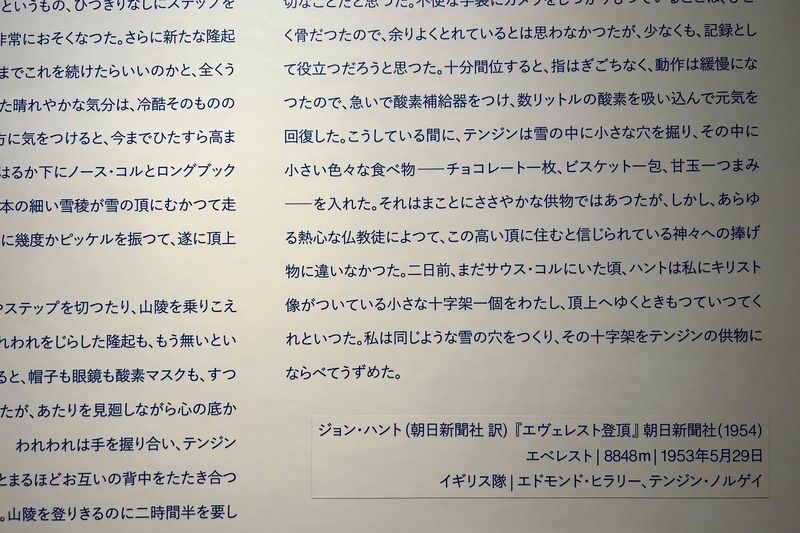 というもの、ひつきりなしにステップを
非常におそくなつた。さらに新たな隆起
までこれを続けたらいいのかと、全くう
た晴れやかな気分は、冷酷そのものの
方に気をつけると、今までひたすら高ま
はるか下にノース・コルとロングブック
本の細い雪稜が雪の頂にむかつて走
に幾度かピッケルを振つて、遂に頂上
やステップを切つたり、山陵を乗りこえ
れわれをじらした隆起も、もう無いとい
ると、帽子も眼鏡も酸素マスクも、すつ
たが、あたりを見廻しながら心の底か
われわれは手を握り合い、テンジン
とまるほどお互いの背中をたたき合つ
。山陵を登りきるのに二時間半を要し
く骨だつたので、余りよくとれているとは思わなかつたが、少なくも、記録とし
て役立つだろうと思つた。十分間位すると、指はぎごちなく、動作は緩慢にな
つたので、急いで酸素補給器をつけ、数リットルの酸素を吸い込んで元気を
回復した。こうしている間に、テンジンは雪の中に小さな穴を掘り、その中に
小さい色々な食べ物——チョコレート一枚、ビスケット一包、甘玉一つまみ
——を入れた。それはまことにささやかな供物ではあつたが、しかし、あらゆ
る熱心な仏教徒によつて、この高い頂に住むと信じられている神々への捧げ
物に違いなかつた。二日前、まだサウス・コルにいた頃、ハントは私にキリスト
像がついている小さな十字架一個をわたし、頂上へゆくときもつていつてく
れといつた。私は同じような雪の穴をつくり、その十字架をテンジンの供物に
ならべてうずめた。
ジョン・ハント (朝日新聞社 訳)『エヴェレスト登頂』朝日新聞社(1954)
エベレスト | 8848m | 1953年5月29日
イギリス隊 | エドモンド・ヒラリー、テンジン・ノルゲイ